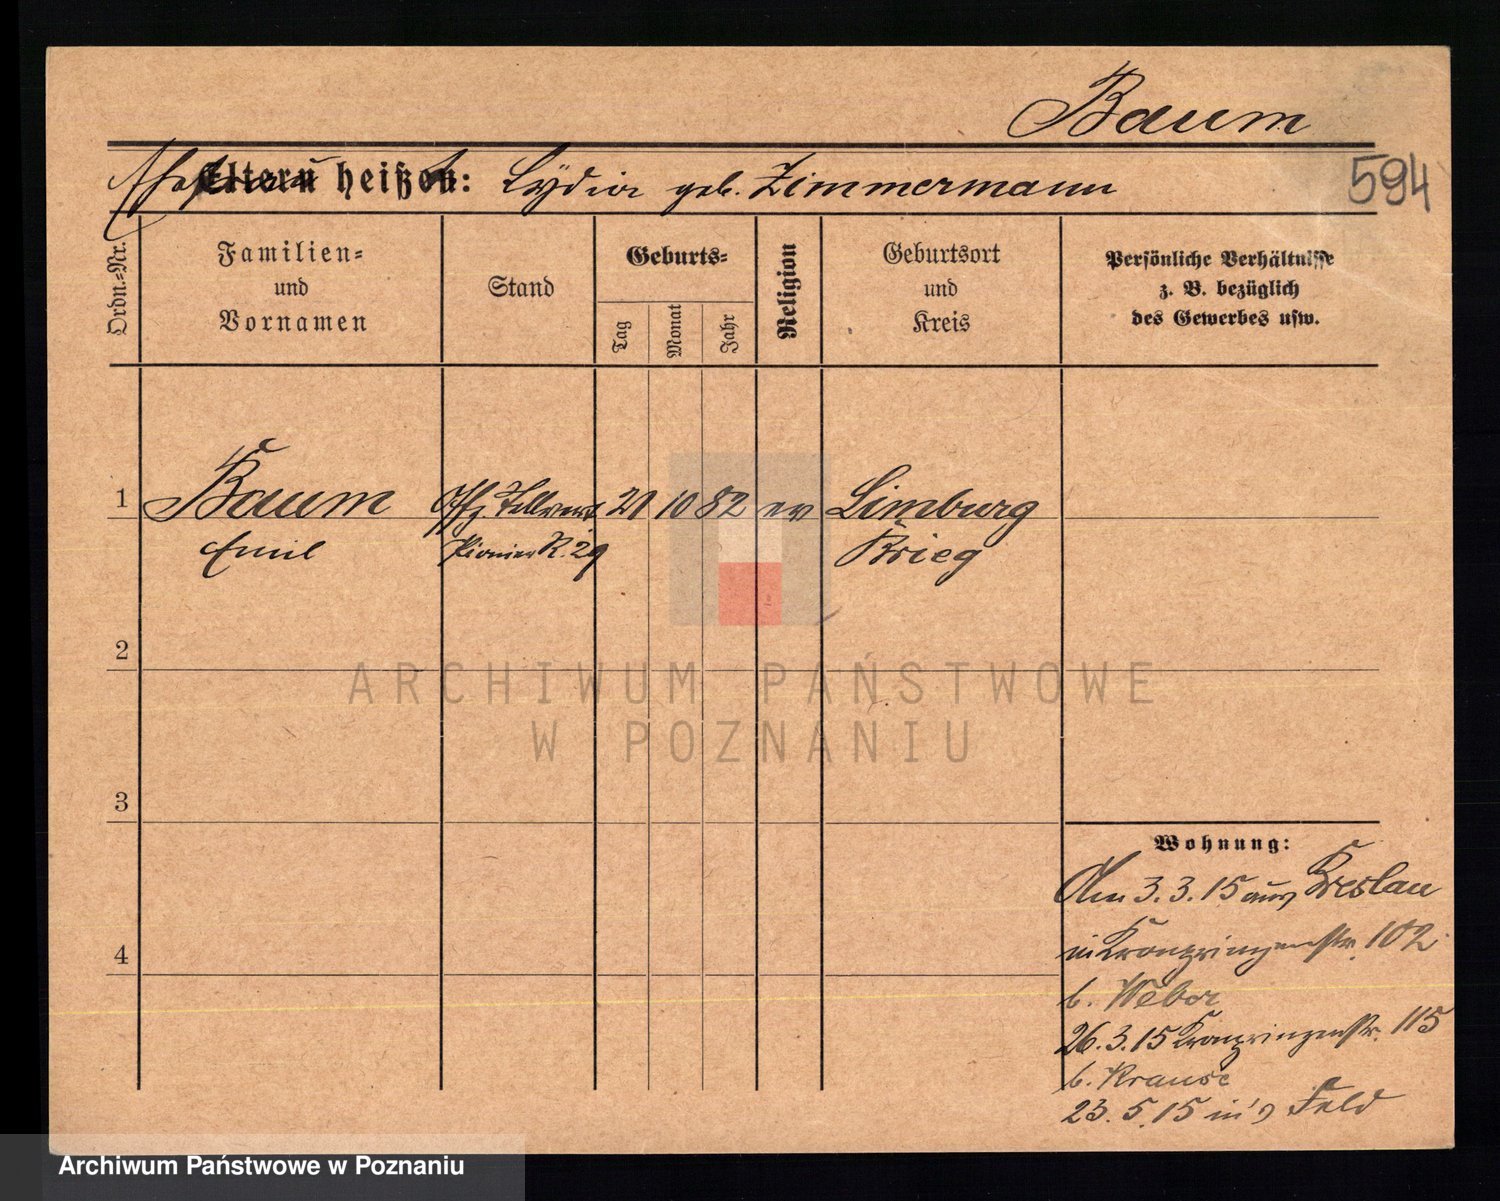 Baum
594
Ehefrau heißt: Lydia geb. Zimmermann
Ordn.-Nr.
Familien-
und
Vornamen
Stand
Geburts-
Tag
Monat
Jahr
Religion
Geburtsort
und
Kreis
Persönliche Verhältnisse
z. B. bezüglich
des Gewerbes usw.
1
Baum
Emil
Offz. Stellvert.
Pionier R. 29
21
10
82
ev
Limburg
Brieg
2
ARCHIWUM PAŃSTWOWE
W POZNANIU
3
4
Wohnung:
Am 3.3.15 aus Breslau
in Kronprinzenstr. 102
b. Weber
26.3.15 Kronprinzenstr. 115
b. Krause
23.5.15 in's Feld
Archiwum Państwowe w Poznaniu